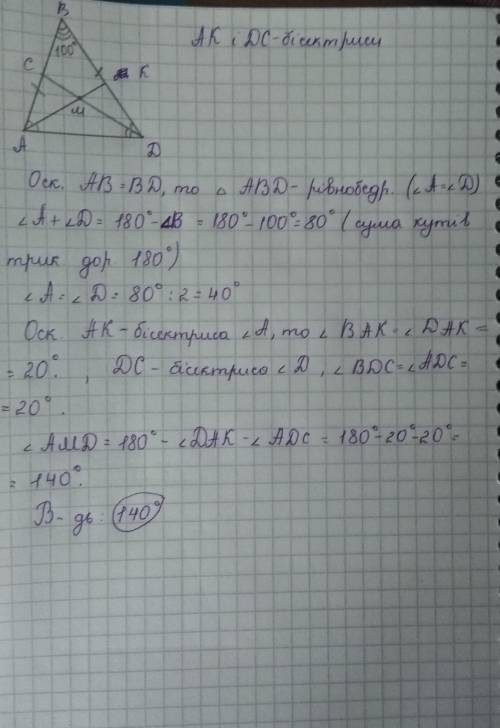 B
AK і DC-бісектриси
100°
C
K
M
A
D
Оск. AB=BD, то △ ABD- рівнобедр. (∠A=∠D)
∠A+∠D= 180°-∠B = 180°-100°=80° (сума кутів
трик дор. 180°)
∠A=∠D= 80°:2=40°
Оск. AK-бісектриса ∠A, то ∠ BAK= ∠ DAK =
= 20°. , DC- бісектриса ∠ D , ∠ BDC=∠ADC=
=20°.
∠AMD=180°-∠DAK-∠ ADC = 180°-20°-20°=
= 140°.
В-дь: 140°